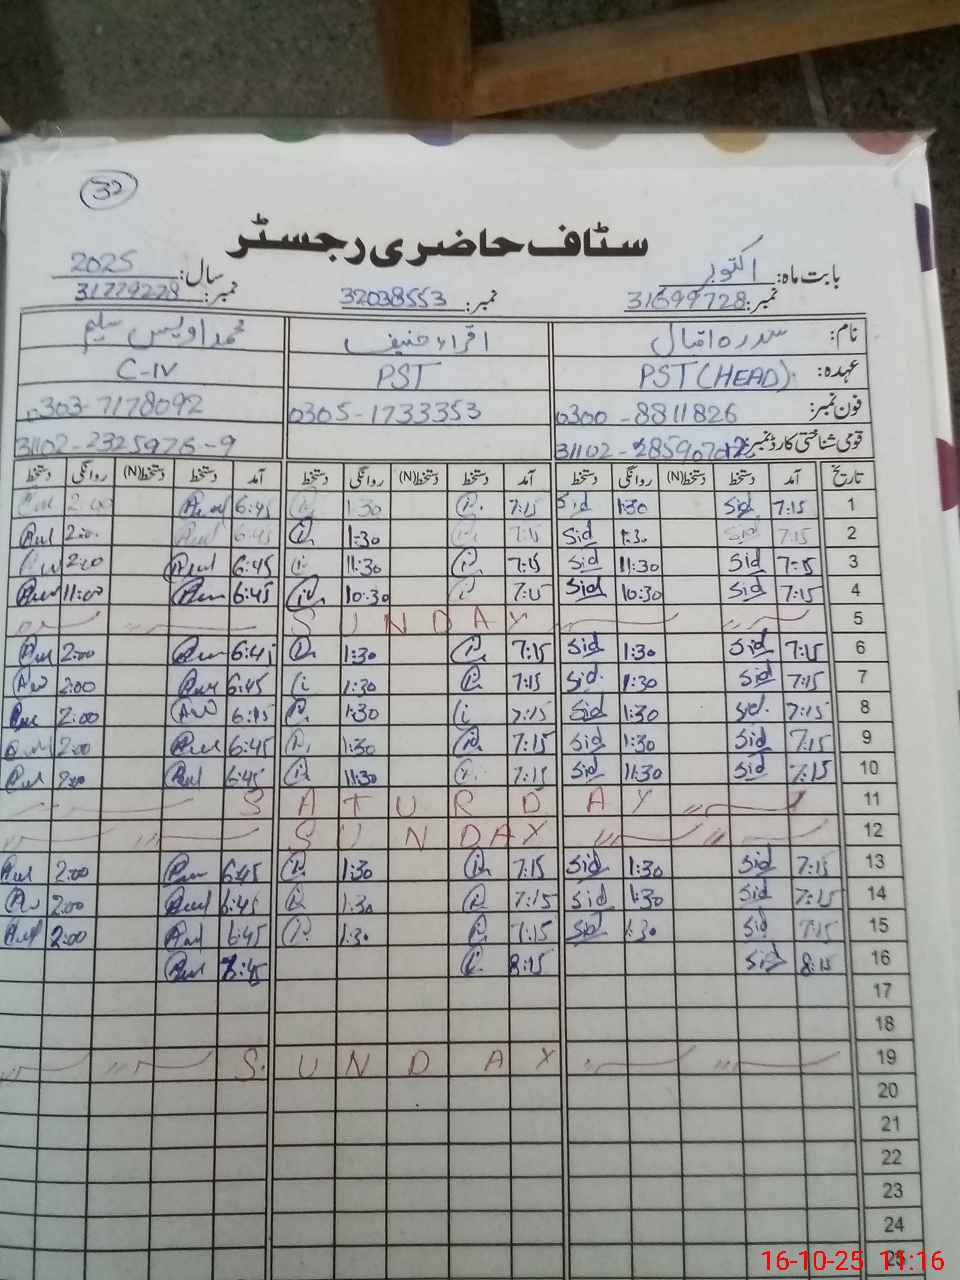 32
سٹاف حاضری رجسٹر
بابت ماہ: اکتوبر سال: 2025
نمبر: 31699728 نمبر: 32038553 نمبر: 31779278
نام: سدرہ اقبال اقراء حنیف محمد اویس سلیم
عہدہ: PST (HEAD) PST C-IV
فون نمبر: 0300-8811826 0305-1733353 0303-7178092
قومی شناختی کارڈ نمبر: 31102- 31102-2325976-9
تاریخ آمد دستخط دستخط(N) روانگی دستخط آمد دستخط دستخط(N) روانگی دستخط آمد دستخط دستخط(N) روانگی دستخط
1 7:15 Sid 1:30 Sid 7:15 1:30 6:45 2:00
2 7:15 Sid 1:30 Sid 7:15 1:30 6:45 2:00
3 7:15 Sid 11:30 Sid 7:15 11:30 6:45 2:00
4 7:15 Sid 10:30 Sid 7:15 10:30 6:45 11:00
5 SUNDAY
6 7:15 Sid 1:30 Sid 7:15 1:30 6:45 2:00
7 7:15 Sid 1:30 Sid 7:15 1:30 6:45 2:00
8 7:15 Sid 1:30 Sid 7:15 1:30 6:45 2:00
9 7:15 Sid 1:30 Sid 7:15 1:30 6:45 2:00
10 7:15 Sid 11:30 Sid 7:15 11:30 6:45 2:00
11 SATURDAY
12 SUNDAY
13 7:15 Sid 1:30 Sid 7:15 1:30 6:45 2:00
14 7:15 Sid 1:30 Sid 7:15 1:30 6:45 2:00
15 7:15 Sid 1:30 Sid 7:15 1:30 6:45 2:00
16 8:15 Sid 8:15
17
18
19 SUNDAY
20
21
22
23
24
25
16-10-25 11:16